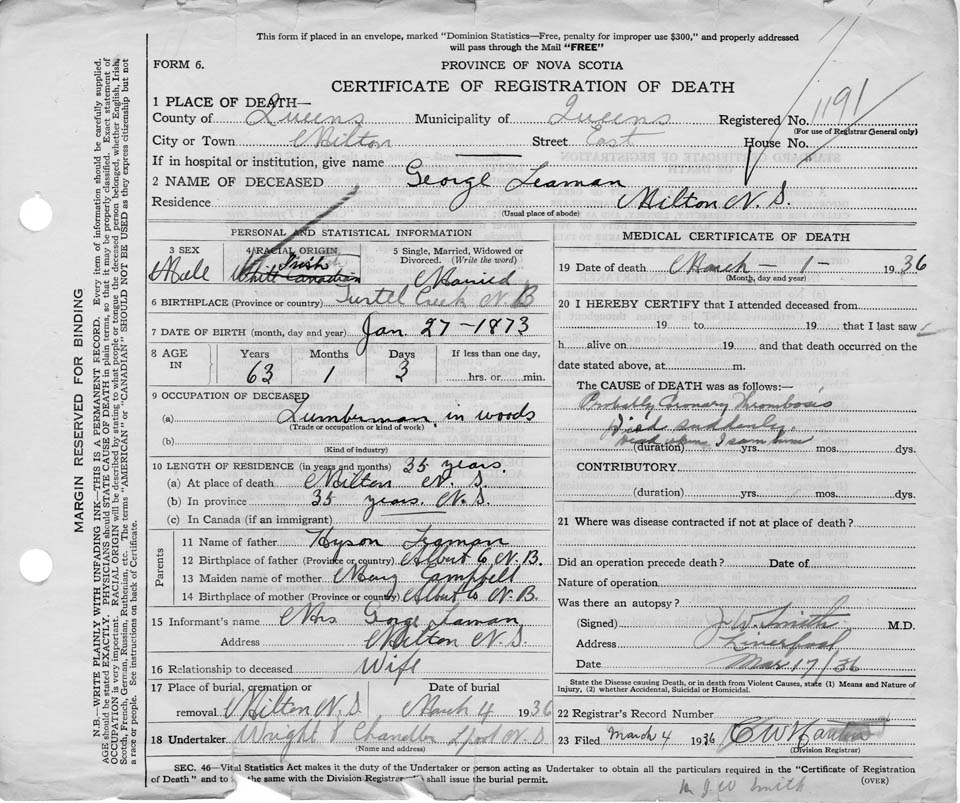 This form if placed in an envelope, marked "Dominion Statistics—Free, penalty for improper use $300," and properly addressed
will pass through the Mail "FREE"
FORM 6.
PROVINCE OF NOVA SCOTIA
CERTIFICATE OF REGISTRATION OF DEATH
1 PLACE OF DEATH—
County of Queens Municipality of Queens Registered No. 1191
(For use of Registrar General only)
City or Town Milton Street East House No.
If in hospital or institution, give name
2 NAME OF DECEASED George Leaman
Residence Milton N.S.
(Usual place of abode)
PERSONAL AND STATISTICAL INFORMATION
3 SEX 4 RACIAL ORIGIN 5 Single, Married, Widowed or
Divorced. (Write the word)
Male White Canadian Irish Married
6 BIRTHPLACE (Province or country) Turtel Creek N.B
7 DATE OF BIRTH (month, day and year) Jan. 27-1873
8 AGE IN Years Months Days If less than one day,
63 1 3 hrs. or min.
9 OCCUPATION OF DECEASED
(a) Lumberman, in woods
(Trade or occupation or kind of work)
(b)
(Kind of industry)
10 LENGTH OF RESIDENCE (in years and months) 35 years.
(a) At place of death Milton N. S.
(b) In province 35 years. N. S.
(c) In Canada (if an immigrant)
Parents
11 Name of father Hyson Leaman
12 Birthplace of father (Province or country) Albert Co N.B.
13 Maiden name of mother Mary Campbell
14 Birthplace of mother (Province or country) Albert Co N.B.
15 Informant's name Mrs George Leaman
Address Milton N.S.
16 Relationship to deceased Wife
17 Place of burial, cremation or Date of burial
removal Milton N.S March 4 1936
18 Undertaker Wright & Chandler Lpool N.S
(Name and address)
MEDICAL CERTIFICATE OF DEATH
19 Date of death March - 1 - 1936
(Month, day and year)
20 I HEREBY CERTIFY that I attended deceased from
19 to 19 that I last saw
h alive on 19 and that death occurred on the
date stated above, at m.
The CAUSE OF DEATH was as follows:—
Probably Cronery Thrombosis
Died suddenly.
Dead when I saw him
(duration) yrs. mos. dys.
CONTRIBUTORY.
(duration) yrs. mos. dys.
21 Where was disease contracted if not at place of death?
Did an operation precede death? Date of
Nature of operation
Was there an autopsy?
(Signed) J. W. Smith M.D.
Address Liverpool
Date Mar 17/36
State the Disease causing Death, or in death from Violent Causes, state (1) Means and Nature of
Injury, (2) whether Accidental, Suicidal or Homicidal.
22 Registrar's Record Number
23 Filed March 4 1936 C W
(Division Registrar)
SEC. 46—Vital Statistics Act makes it the duty of the Undertaker or person acting as Undertaker to obtain all the particulars required in the "Certificate of Registration
of Death" and to the same with the Division Registrar shall issue the burial permit. (OVER)
J W Smith
MARGIN RESERVED FOR BINDING
N.B.—WRITE PLAINLY WITH UNFADING INK—THIS IS A PERMANENT RECORD. Every item of information should be carefully supplied.
AGE should be stated EXACTLY. PHYSICIANS should STATE CAUSE OF DEATH in plain terms, so that it may be properly classified. Exact statement of
OCCUPATION is very important. RACIAL ORIGIN will be described by stating to what people or tongue the deceased person belonged, whether English, Irish,
Scotch, French, German, Russian, Ruthenian, etc. The terms "AMERICAN" or "CANADIAN" SHOULD NOT BE USED as they express citizenship but not
a race or people. See instructions on back of Certificate.